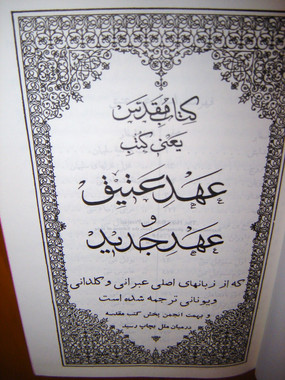 کتاب مقدس
یعنی کتب
عهد عتیق
و
عهد جدید
که از زبانهای اصلی عبرانی و کلدانی
و یونانی ترجمه شده است
و بهمت انجمن پخش کتب مقدسه
در میان ملل بچاپ رسید